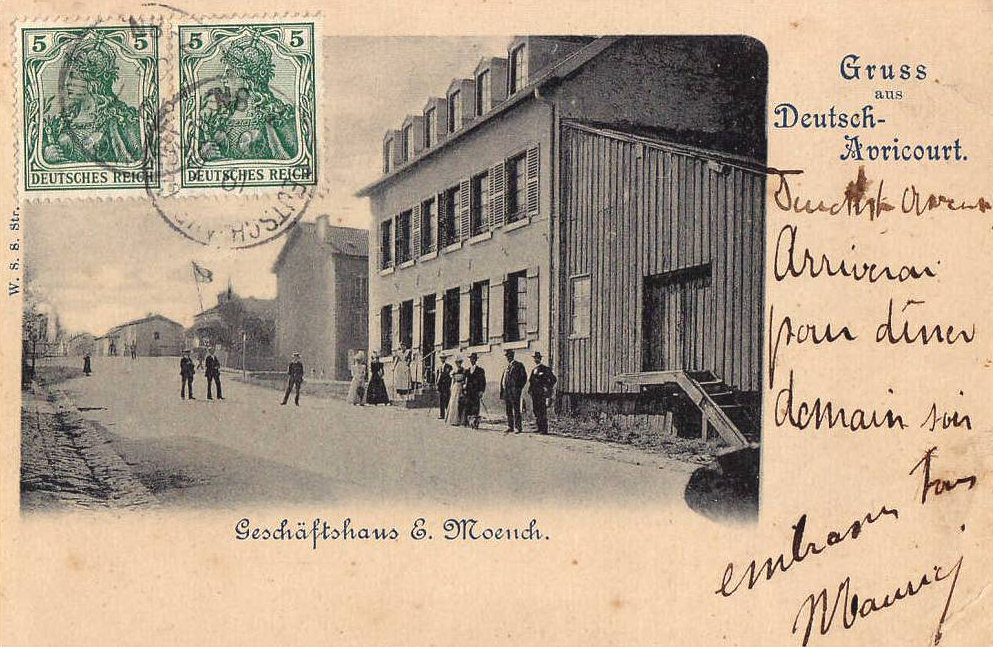 5 5
DEUTSCHES REICH
5 5
DEUTSCHES REICH
Gruss
aus
Deutsch-
Avricourt.
W. S. S. Str.
Arriverai
pour dîner
demain soir
embrasse tous
Maurice
Geschäftshaus E. Moench.